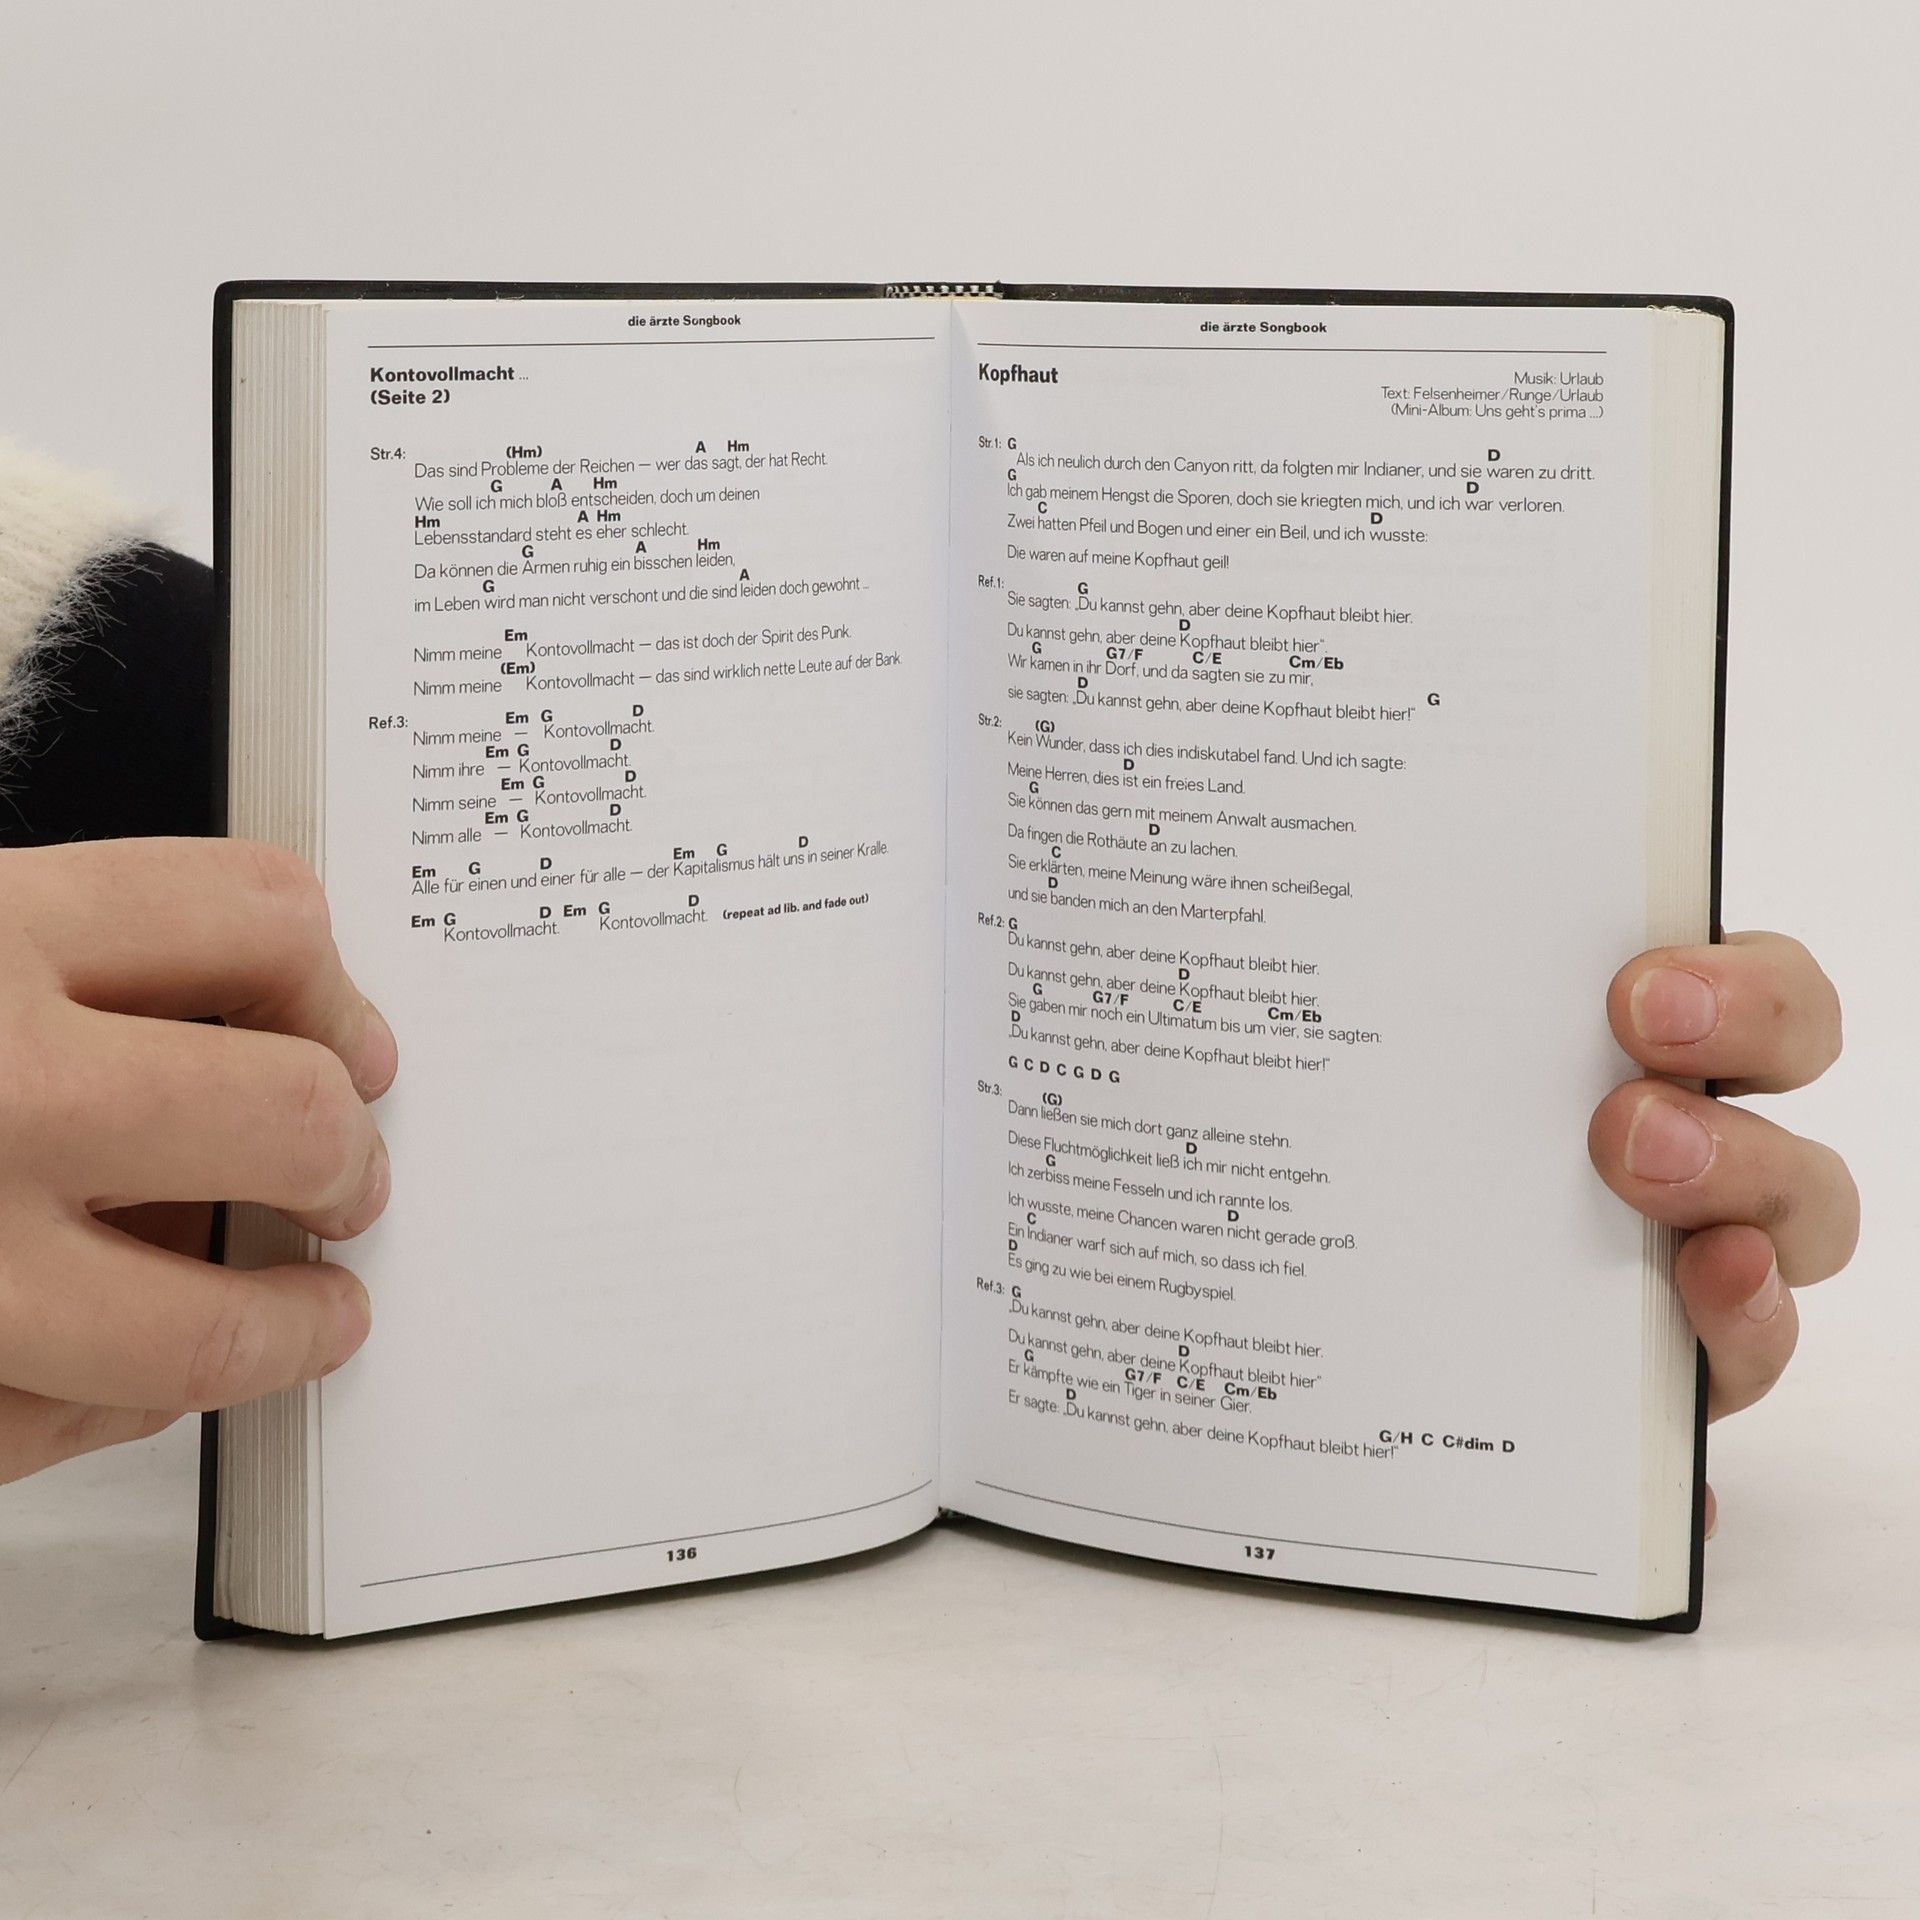 die ärzte Songbook
Kontovollmacht ...
(Seite 2)
Str.4: (Hm) A Hm
Das sind Probleme der Reichen – wer das sagt, der hat Recht.
G A Hm
Wie soll ich mich bloß entscheiden, doch um deinen
Hm A Hm
Lebensstandard steht es eher schlecht.
G A Hm
Da können die Armen ruhig ein bisschen leiden,
G A
im Leben wird man nicht verschont und die sind leiden doch gewohnt ...
Em
Nimm meine Kontovollmacht – das ist doch der Spirit des Punk.
(Em)
Nimm meine Kontovollmacht – das sind wirklich nette Leute auf der Bank.
Ref.3: Em G D
Nimm meine – Kontovollmacht.
Em G D
Nimm ihre – Kontovollmacht.
Em G D
Nimm seine – Kontovollmacht.
Em G D
Nimm alle – Kontovollmacht.
Em G D Em G D
Alle für einen und einer für alle – der Kapitalismus hält uns in seiner Kralle.
Em G D Em G D
Kontovollmacht. Kontovollmacht. (repeat ad lib. and fade out)
136
die ärzte Songbook
Kopfhaut
Musik: Urlaub
Text: Felsenheimer/Runge/Urlaub
(Mini-Album: Uns geht's prima ...)
Str.1: G D
Als ich neulich durch den Canyon ritt, da folgten mir Indianer, und sie waren zu dritt.
G D
Ich gab meinem Hengst die Sporen, doch sie kriegten mich, und ich war verloren.
C D
Zwei hatten Pfeil und Bogen und einer ein Beil, und ich wusste:
Die waren auf meine Kopfhaut geil!
Ref.1: G
Sie sagten: „Du kannst gehn, aber deine Kopfhaut bleibt hier.
D
Du kannst gehn, aber deine Kopfhaut bleibt hier".
G G7/F C/E Cm/Eb
Wir kamen in ihr Dorf, und da sagten sie zu mir,
D G
sie sagten: „Du kannst gehn, aber deine Kopfhaut bleibt hier!"
Str.2: (G)
Kein Wunder, dass ich dies indiskutabel fand. Und ich sagte:
D
Meine Herren, dies ist ein freies Land.
G
Sie können das gern mit meinem Anwalt ausmachen.
D
Da fingen die Rothäute an zu lachen.
C
Sie erklärten, meine Meinung wäre ihnen scheißegal,
D
und sie banden mich an den Marterpfahl.
Ref.2: G
Du kannst gehn, aber deine Kopfhaut bleibt hier.
D
Du kannst gehn, aber deine Kopfhaut bleibt hier.
G G7/F C/E Cm/Eb
Sie gaben mir noch ein Ultimatum bis um vier, sie sagten:
D
„Du kannst gehn, aber deine Kopfhaut bleibt hier!"
G C D C G D G
Str.3: (G)
Dann ließen sie mich dort ganz alleine stehn.
D
Diese Fluchtmöglichkeit ließ ich mir nicht entgehn.
G
Ich zerbiss meine Fesseln und ich rannte los.
D
Ich wusste, meine Chancen waren nicht gerade groß.
C
Ein Indianer warf sich auf mich, so dass ich fiel.
D
Es ging zu wie bei einem Rugbyspiel.
Ref.3: G
„Du kannst gehn, aber deine Kopfhaut bleibt hier.
D
Du kannst gehn, aber deine Kopfhaut bleibt hier"
G G7/F C/E Cm/Eb
Er kämpfte wie ein Tiger in seiner Gier.
D G/H C C#dim D
Er sagte: „Du kannst gehn, aber deine Kopfhaut bleibt hier!"
137